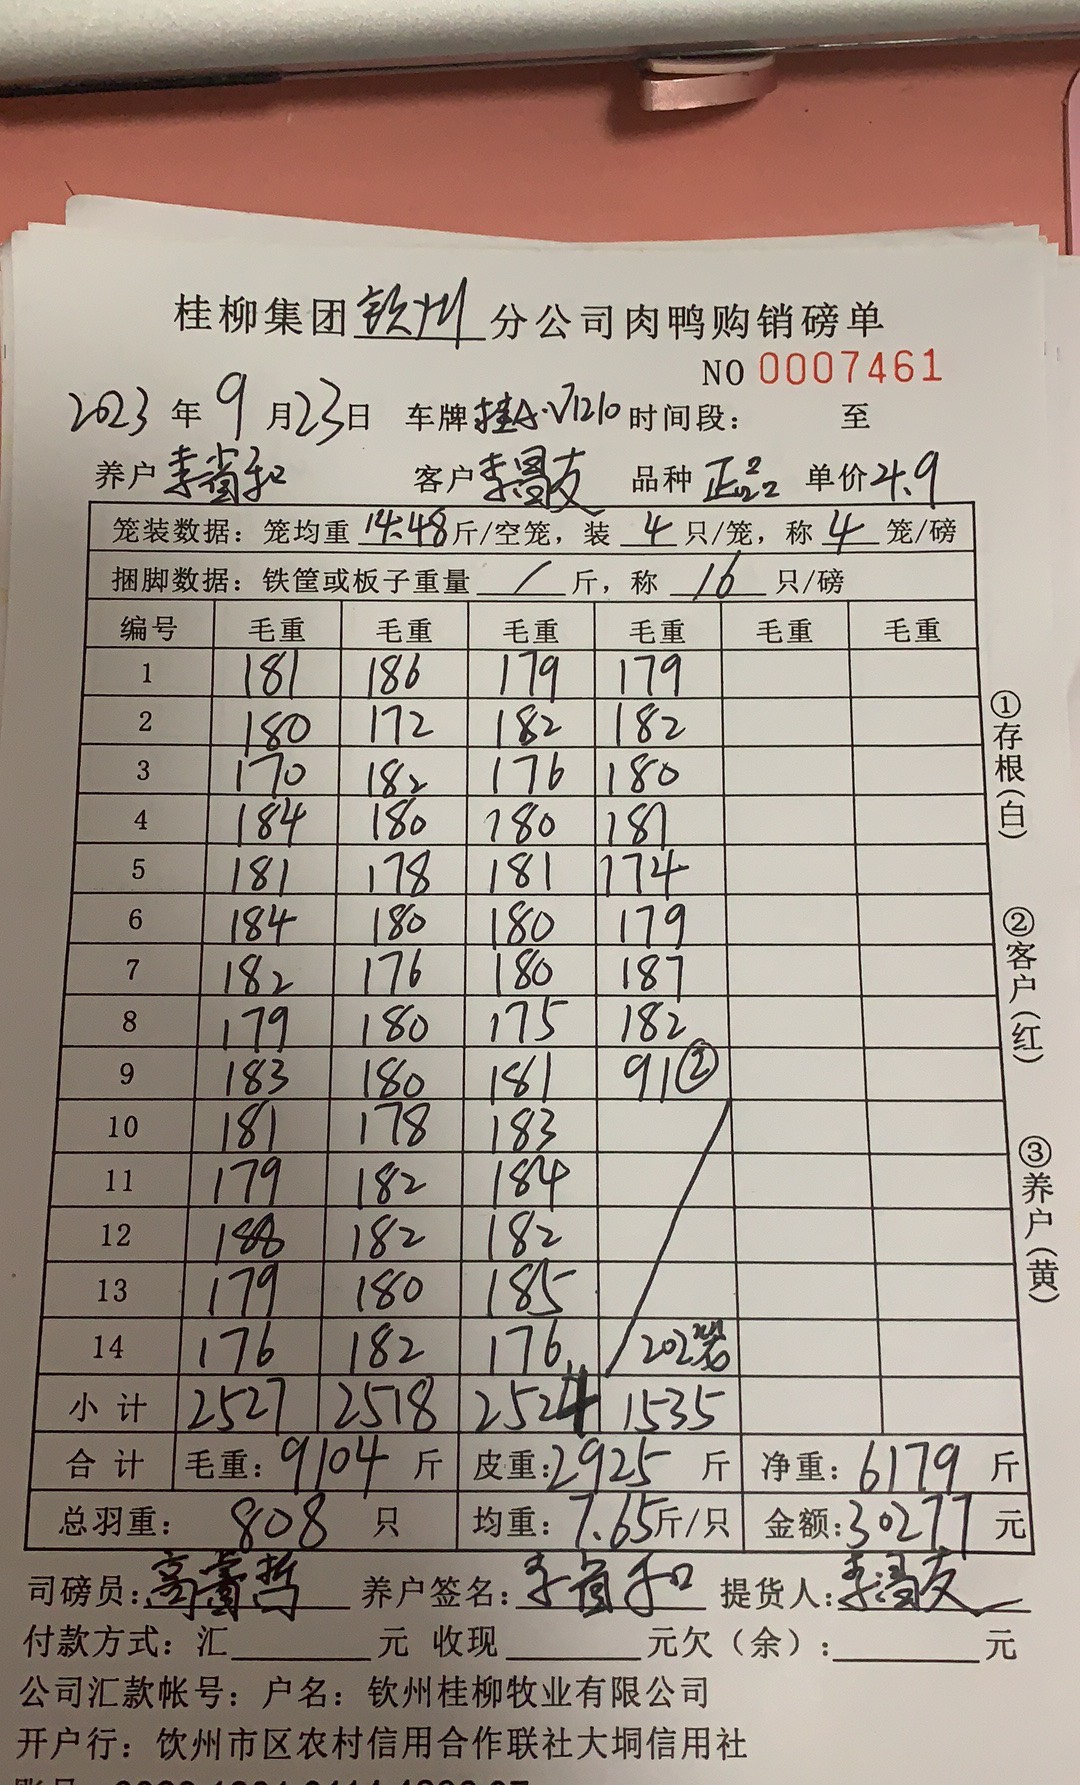 桂柳集团钦州分公司肉鸭购销磅单
NO 0007461
2023年9月23日 车牌桂A·V1210 时间段: 至
养户李省和 客户李昌友 品种 正品 单价4.9
笼装数据: 笼均重 14.48斤/空笼, 装 4 只/笼, 称 4 笼/磅
捆脚数据: 铁筐或板子重量 / 斤, 称 16 只/磅
编号 毛重 毛重 毛重 毛重 毛重 毛重
1 181 186 179 179
2 180 172 182 182
3 170 182 176 180
4 184 180 180 181
5 181 178 181 174
6 184 180 180 179
7 182 176 180 187
8 179 180 175 182
9 183 180 181 91②
10 181 178 183
11 179 182 184
12 188 182 182
13 179 180 185
14 176 182 176 202笼
小计 2527 2518 2524 1535
合计 毛重: 9104 斤 皮重: 2925 斤 净重: 6179 斤
总羽重: 808 只 均重: 7.65斤/只 金额: 30277 元
司磅员: 高 哲 养户签名: 李省和 提货人: 李昌友
付款方式: 汇 元 收现 元欠(余): 元
公司汇款帐号: 户名: 钦州桂柳牧业有限公司
开户行: 钦州市区农村信用合作联社大垌信用社
①存根(白)
②客户(红)
③养户(黄)